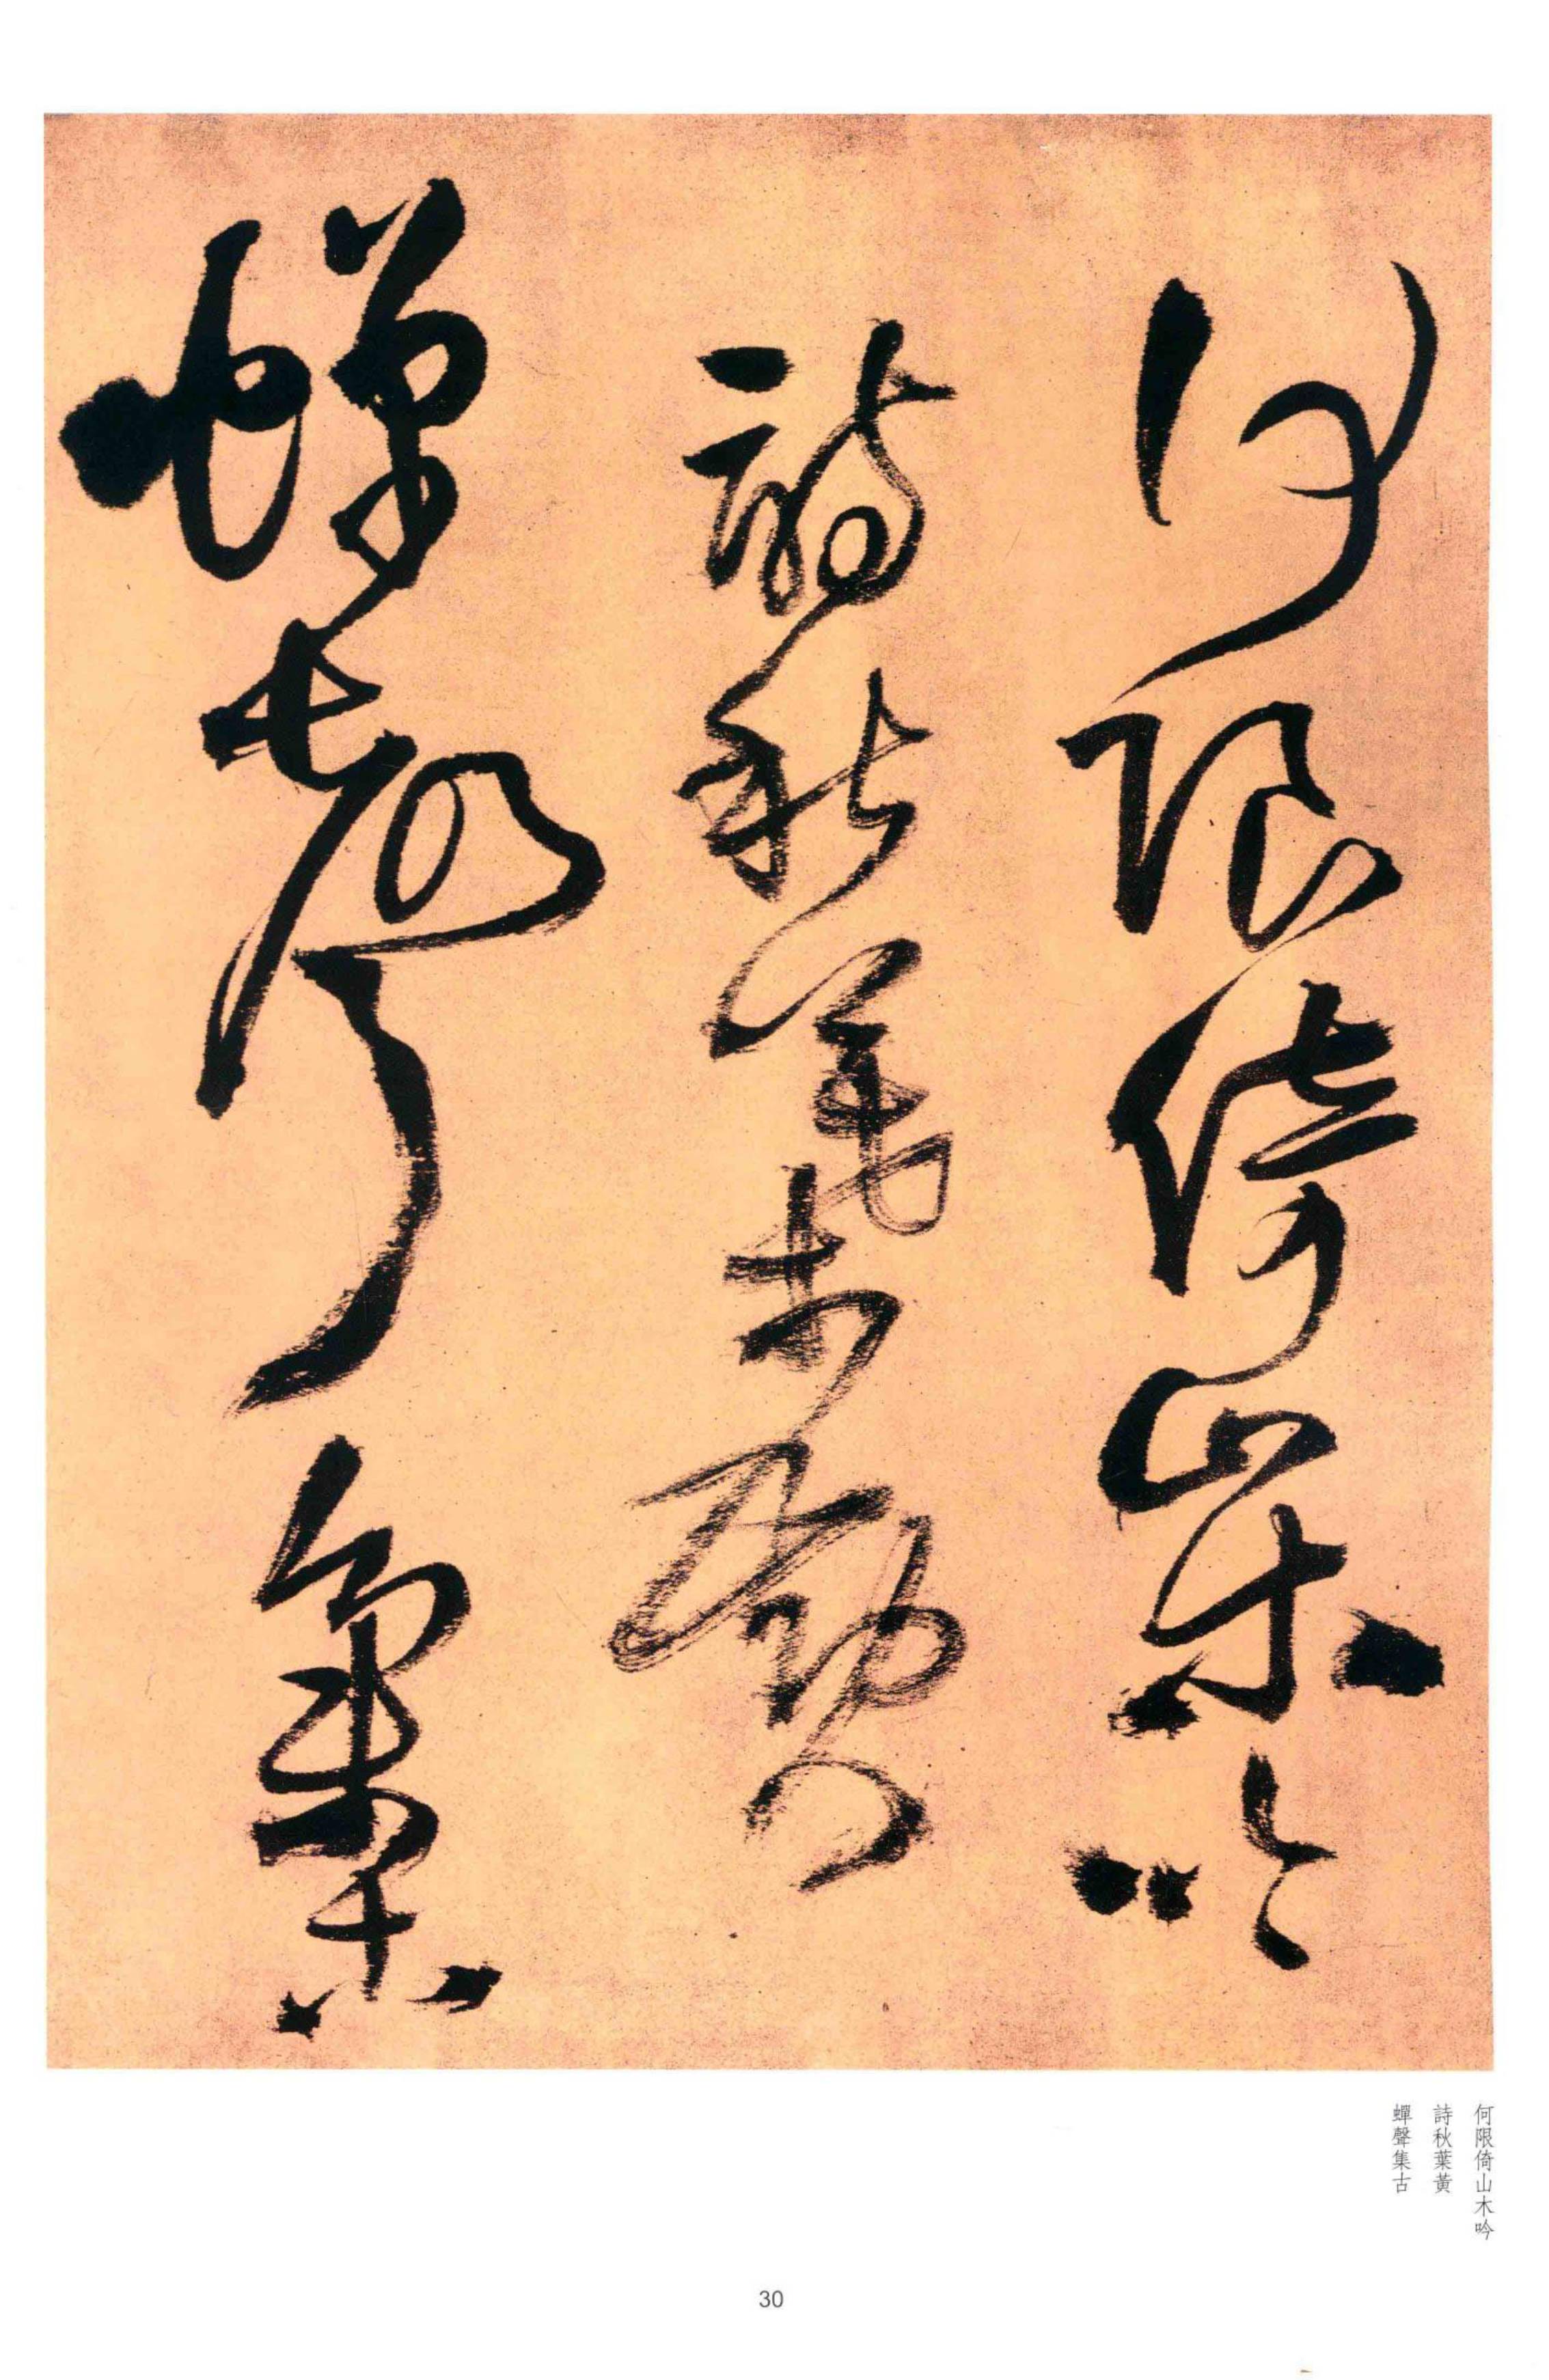 何限倚山木吟
詩秋葉黃
蟬聲集
何限倚山木吟
詩秋葉黃
蟬聲集古
30